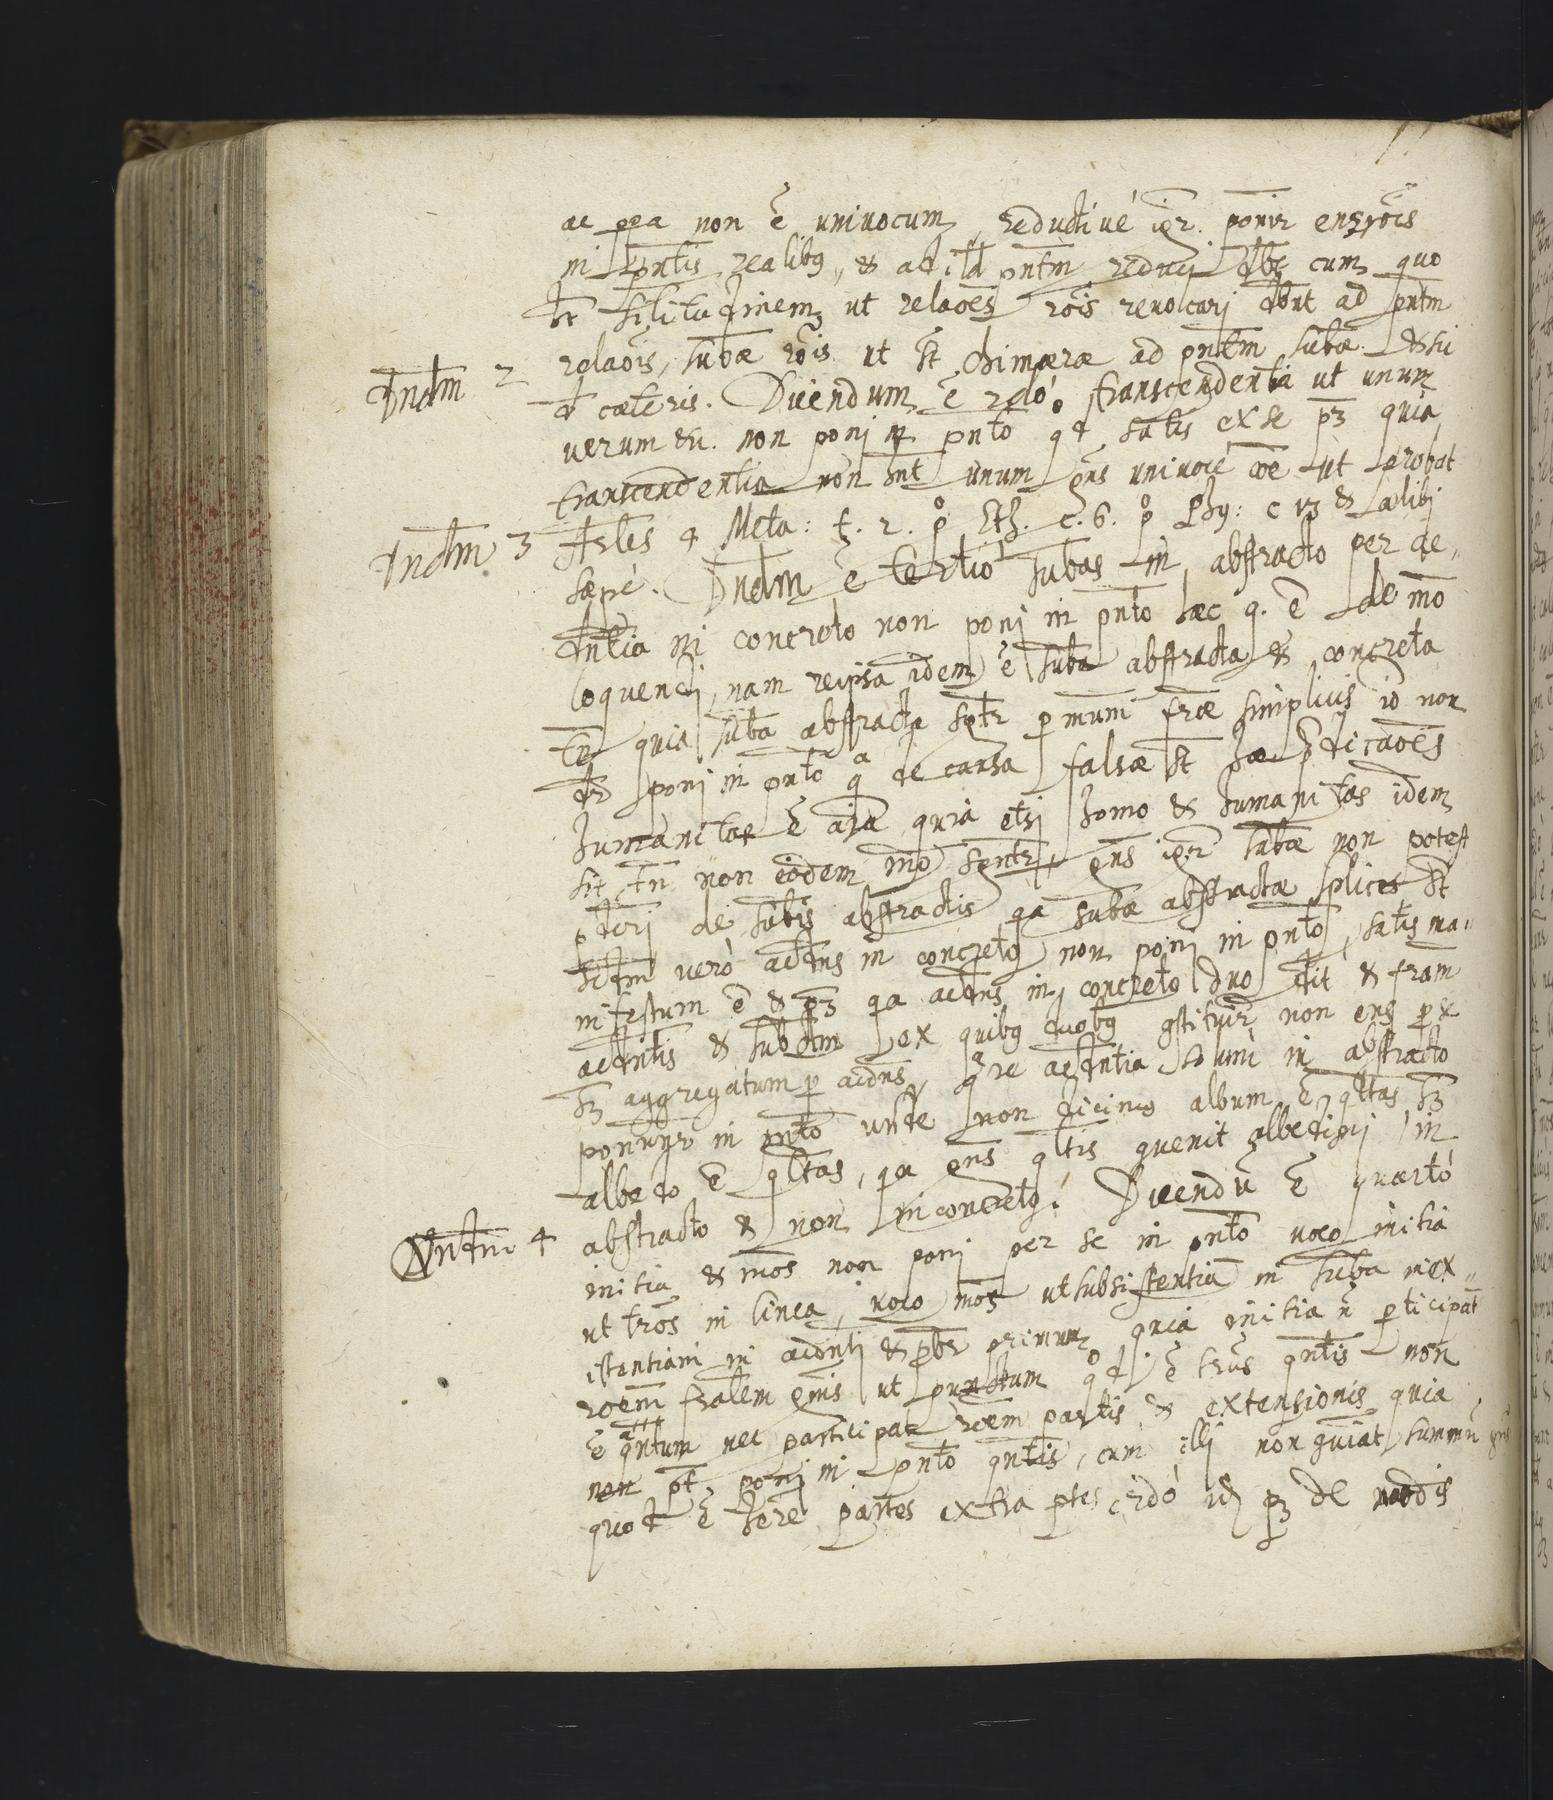 ac ppa non ē univocum, reductivé igr̄. ponir̄ ens rōis
in pntis realibꝰ, & ad ild pntm reduci dbꝫ cum quo
ht̄ silitudinem, ut relaōes rōis revocari dbnt ad pntm
relaōis, subæ rōis ut st̄ chimæræ ad pntm subæ &sic
Dndm 2 d cæteris. Dicendum ē 2do. transcendentia ut unum
verum &c. non poni in pnto qd satis ex se pꝫ quia
transcendentia non snt unum ens univocé cōe ut probat
Dndm 3 Arles 4 Meta: t. 2. po Eth. c. 6. po Phy: c & alibi
sæpé. Dndm ē tertió subas in abstracto per de„
dntia in concreto non poni in pnto hæc q. ē de mō
loquendi, nam reipsa idem ē suba abstracta & concreta
tn̄ quia suba abstracta sptr p munī fræ simplicis ió non
dr̄ poni in pnto qa de causa falsæ st̄ hæ pdicaōes
humanitas ē aīa quia etsi homo & humanitas idem
sit tn̄ non eodem mō sgntr, ens igr̄ subæ non potest
pdicri de subis abstractis qa subæ abstractæ splices st̄
Scdm veró acdns in concreto non poni in pnto, satis ma„
nifestum ē & pꝫ qa acdns in concreto duo dit & fram
acdntis & subdtm ex quibꝰ duobꝰ gstituir̄ non ens p se
sꝫ aggregatum p acdns, qre acdntia solum in abstracto
ponuntr in pnto unde non dicimꝰ album ē qltas sꝫ
albedo ē qltas, qa ens qltis gvenit albedini in
Dndm 4 abstracto & non in concreto. Dicendū ē quartó
initia & mōs non poni per se in pnto voco initia
ut trōs in linea, voco mōs ut subsistentiā in suba inex„
istentiam in acdnti & pbr primum quia initia ñ pticipāt
rōem fralem ēnis ut punctum qod ē trūs qntis non
ē qntum nec participat rōem partis & extensionis quia
non pt poni in pnto qntis, cum illi non gviat summū gns
quod ē here partes extra ptes 2dó id pꝫ de modis